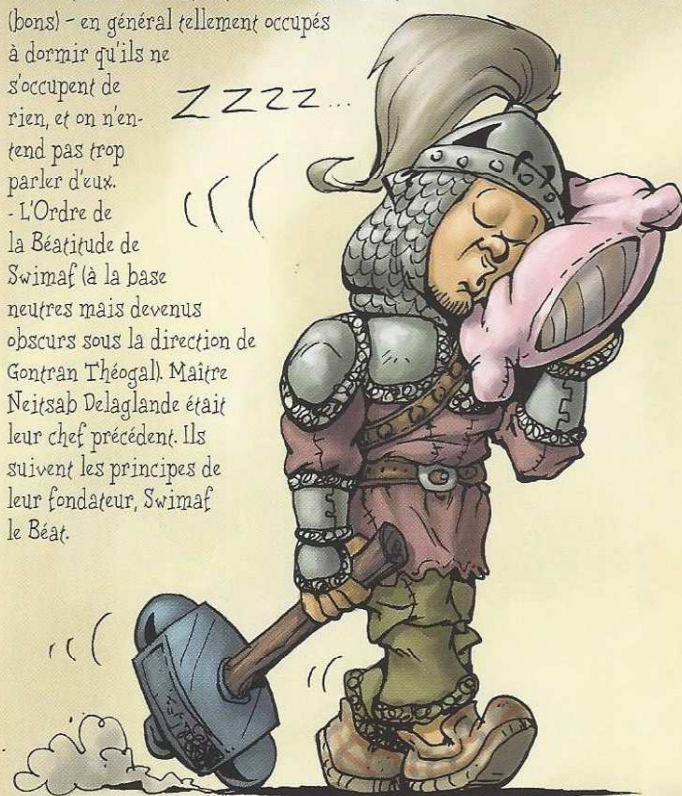 (bons) - en général tellement occupés
à dormir qu'ils ne
s'occupent de
rien, et on n'en-
tend pas trop
parler d'eux.
- L'Ordre de
la Béatitude de
Swimaf (à la base
neutres mais devenus
obscurs sous la direction de
Gontran Théogal). Maître
Neitsab Delaglande était
leur chef précédent. Ils
suivent les principes de
leur fondateur, Swimaf
le Béat.
ZZZZ...